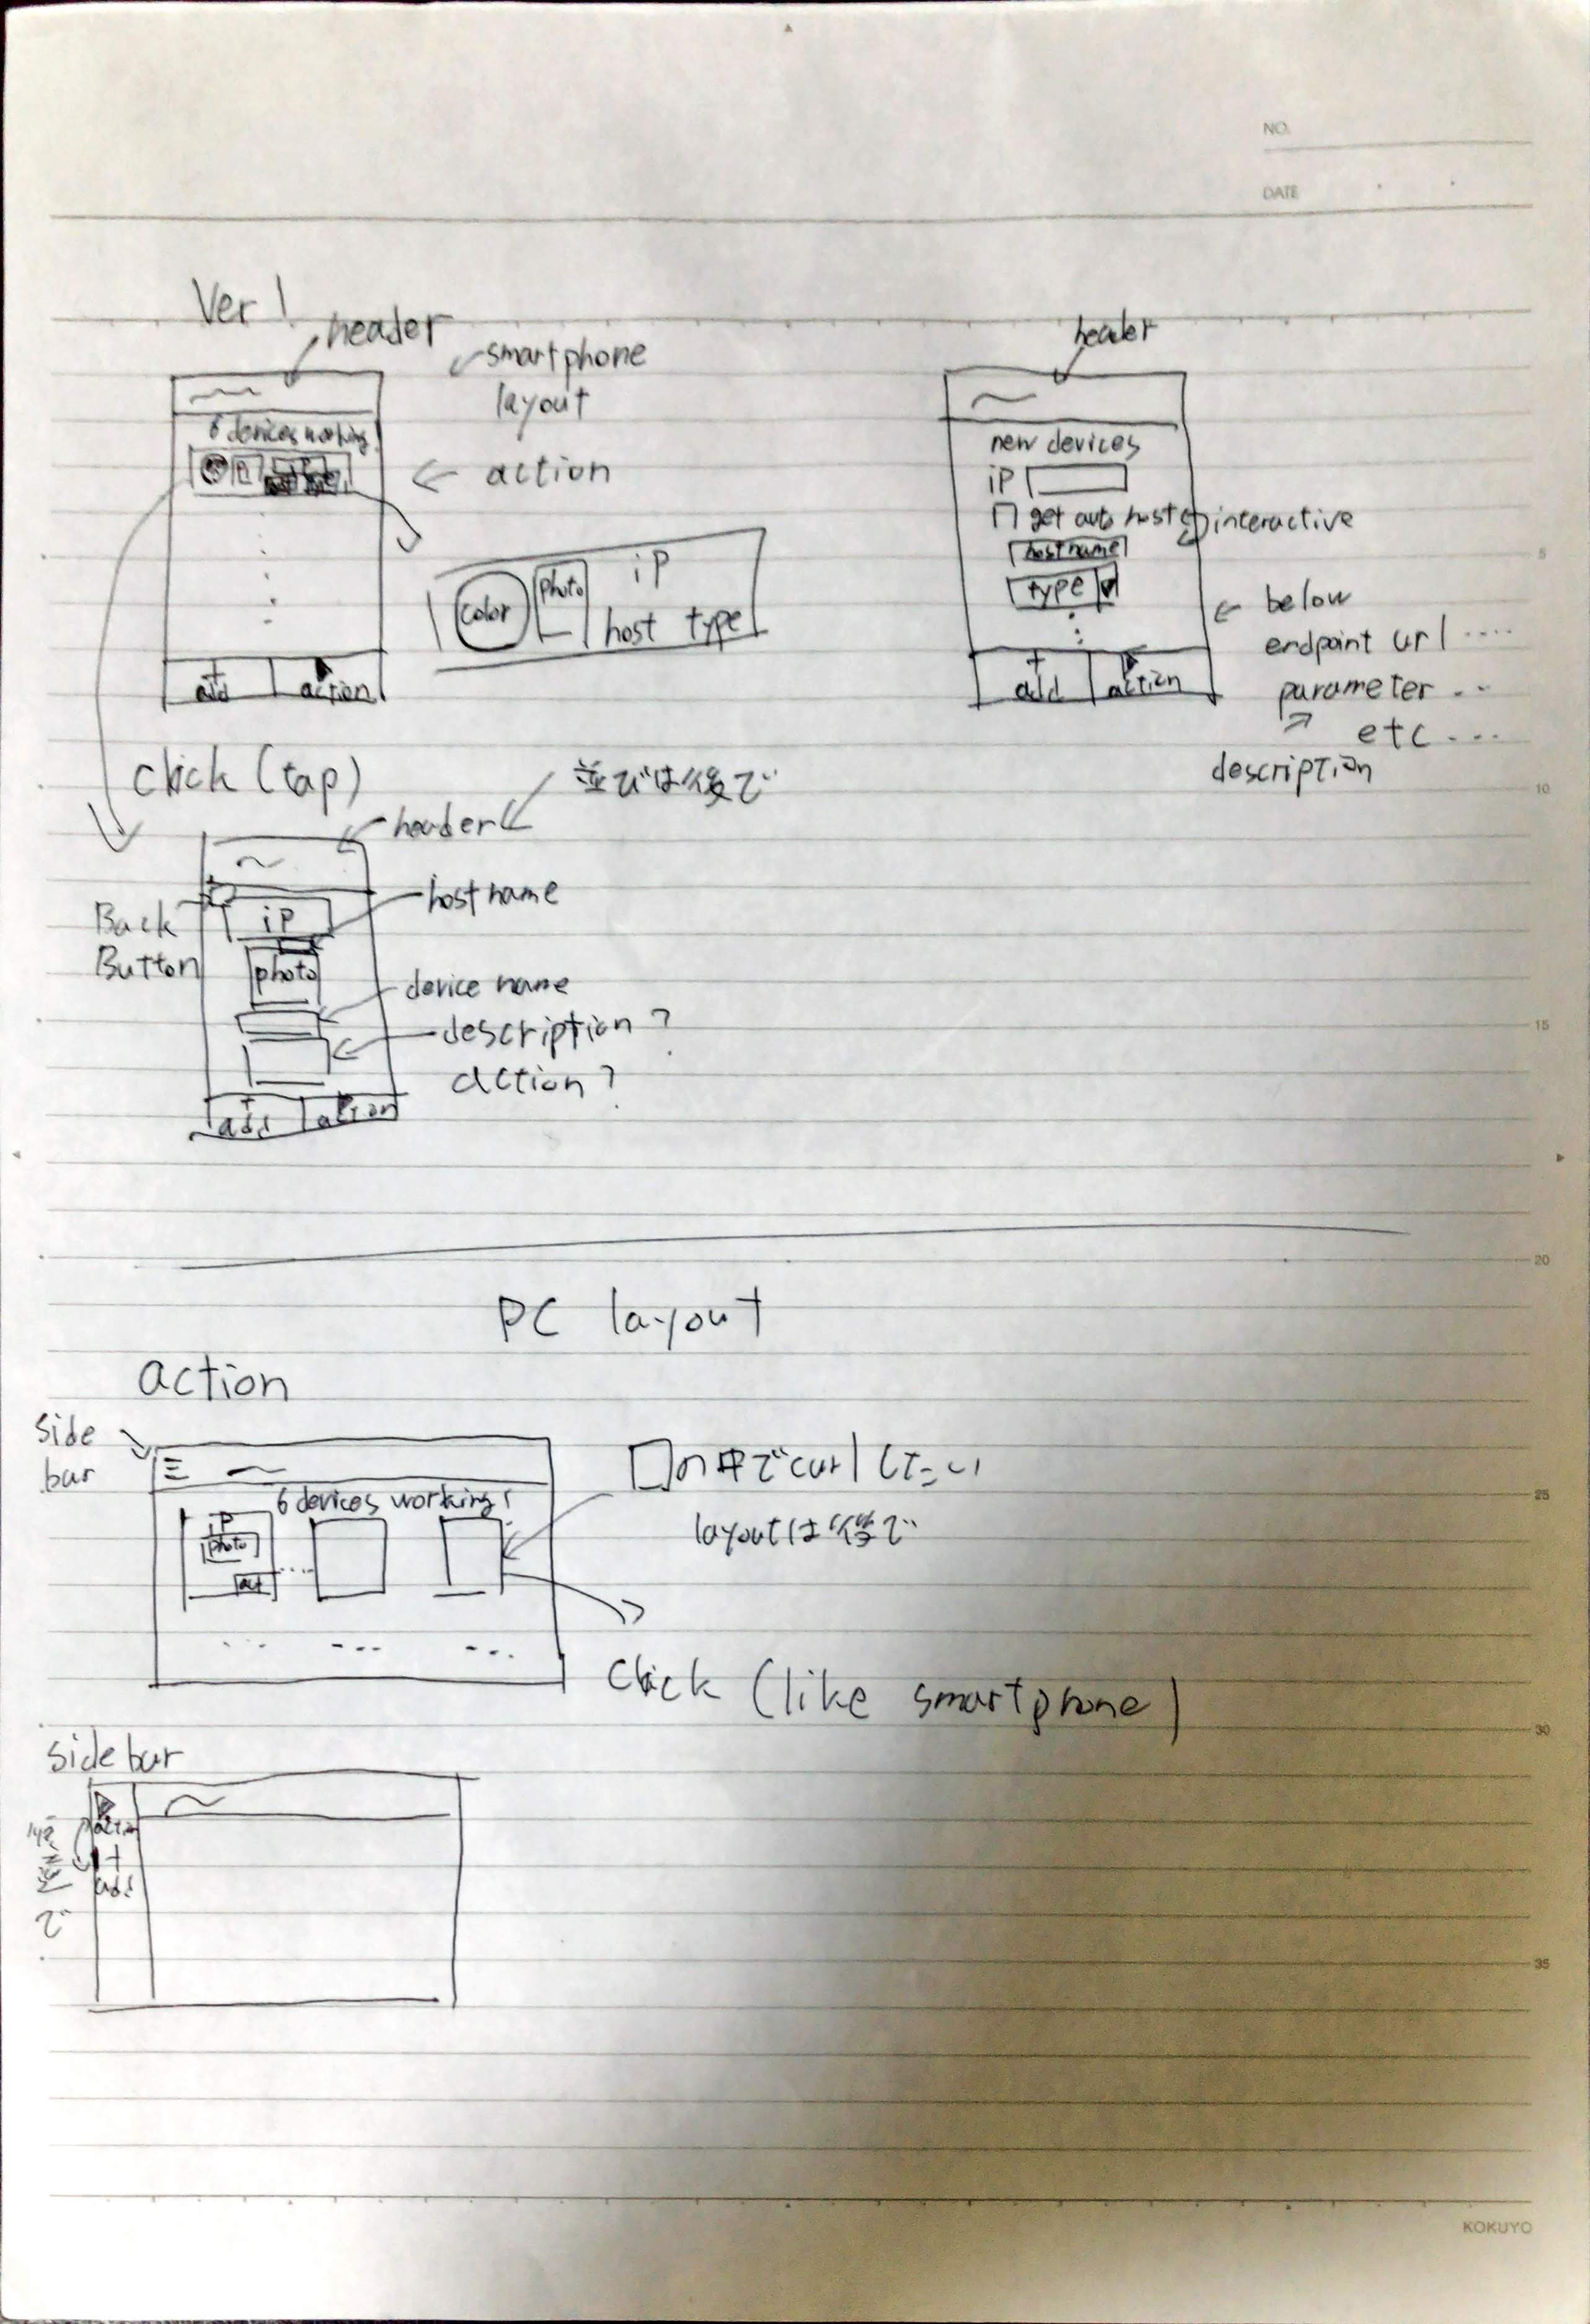 NO.
DATE
Ver 1
header
smartphone
layout
6 devices working!
action
color
photo
iP
host type
+
add
action
header
new devices
iP
get auto host
interactive
hostname
type
below
endpoint url ....
parameter ...
etc ....
description
click (tap)
並びは後で
header
hostname
Back
Button
iP
photo
device name
description?
action?
+
add
action
+
add
action
PC layout
action
side
bar
6 devices working!
iP
photo
act
□の中でcurlしたい
layoutは後で
click (like smartphone)
side bar
action
+
add
5
10
15
20
25
30
35
KOKUYO